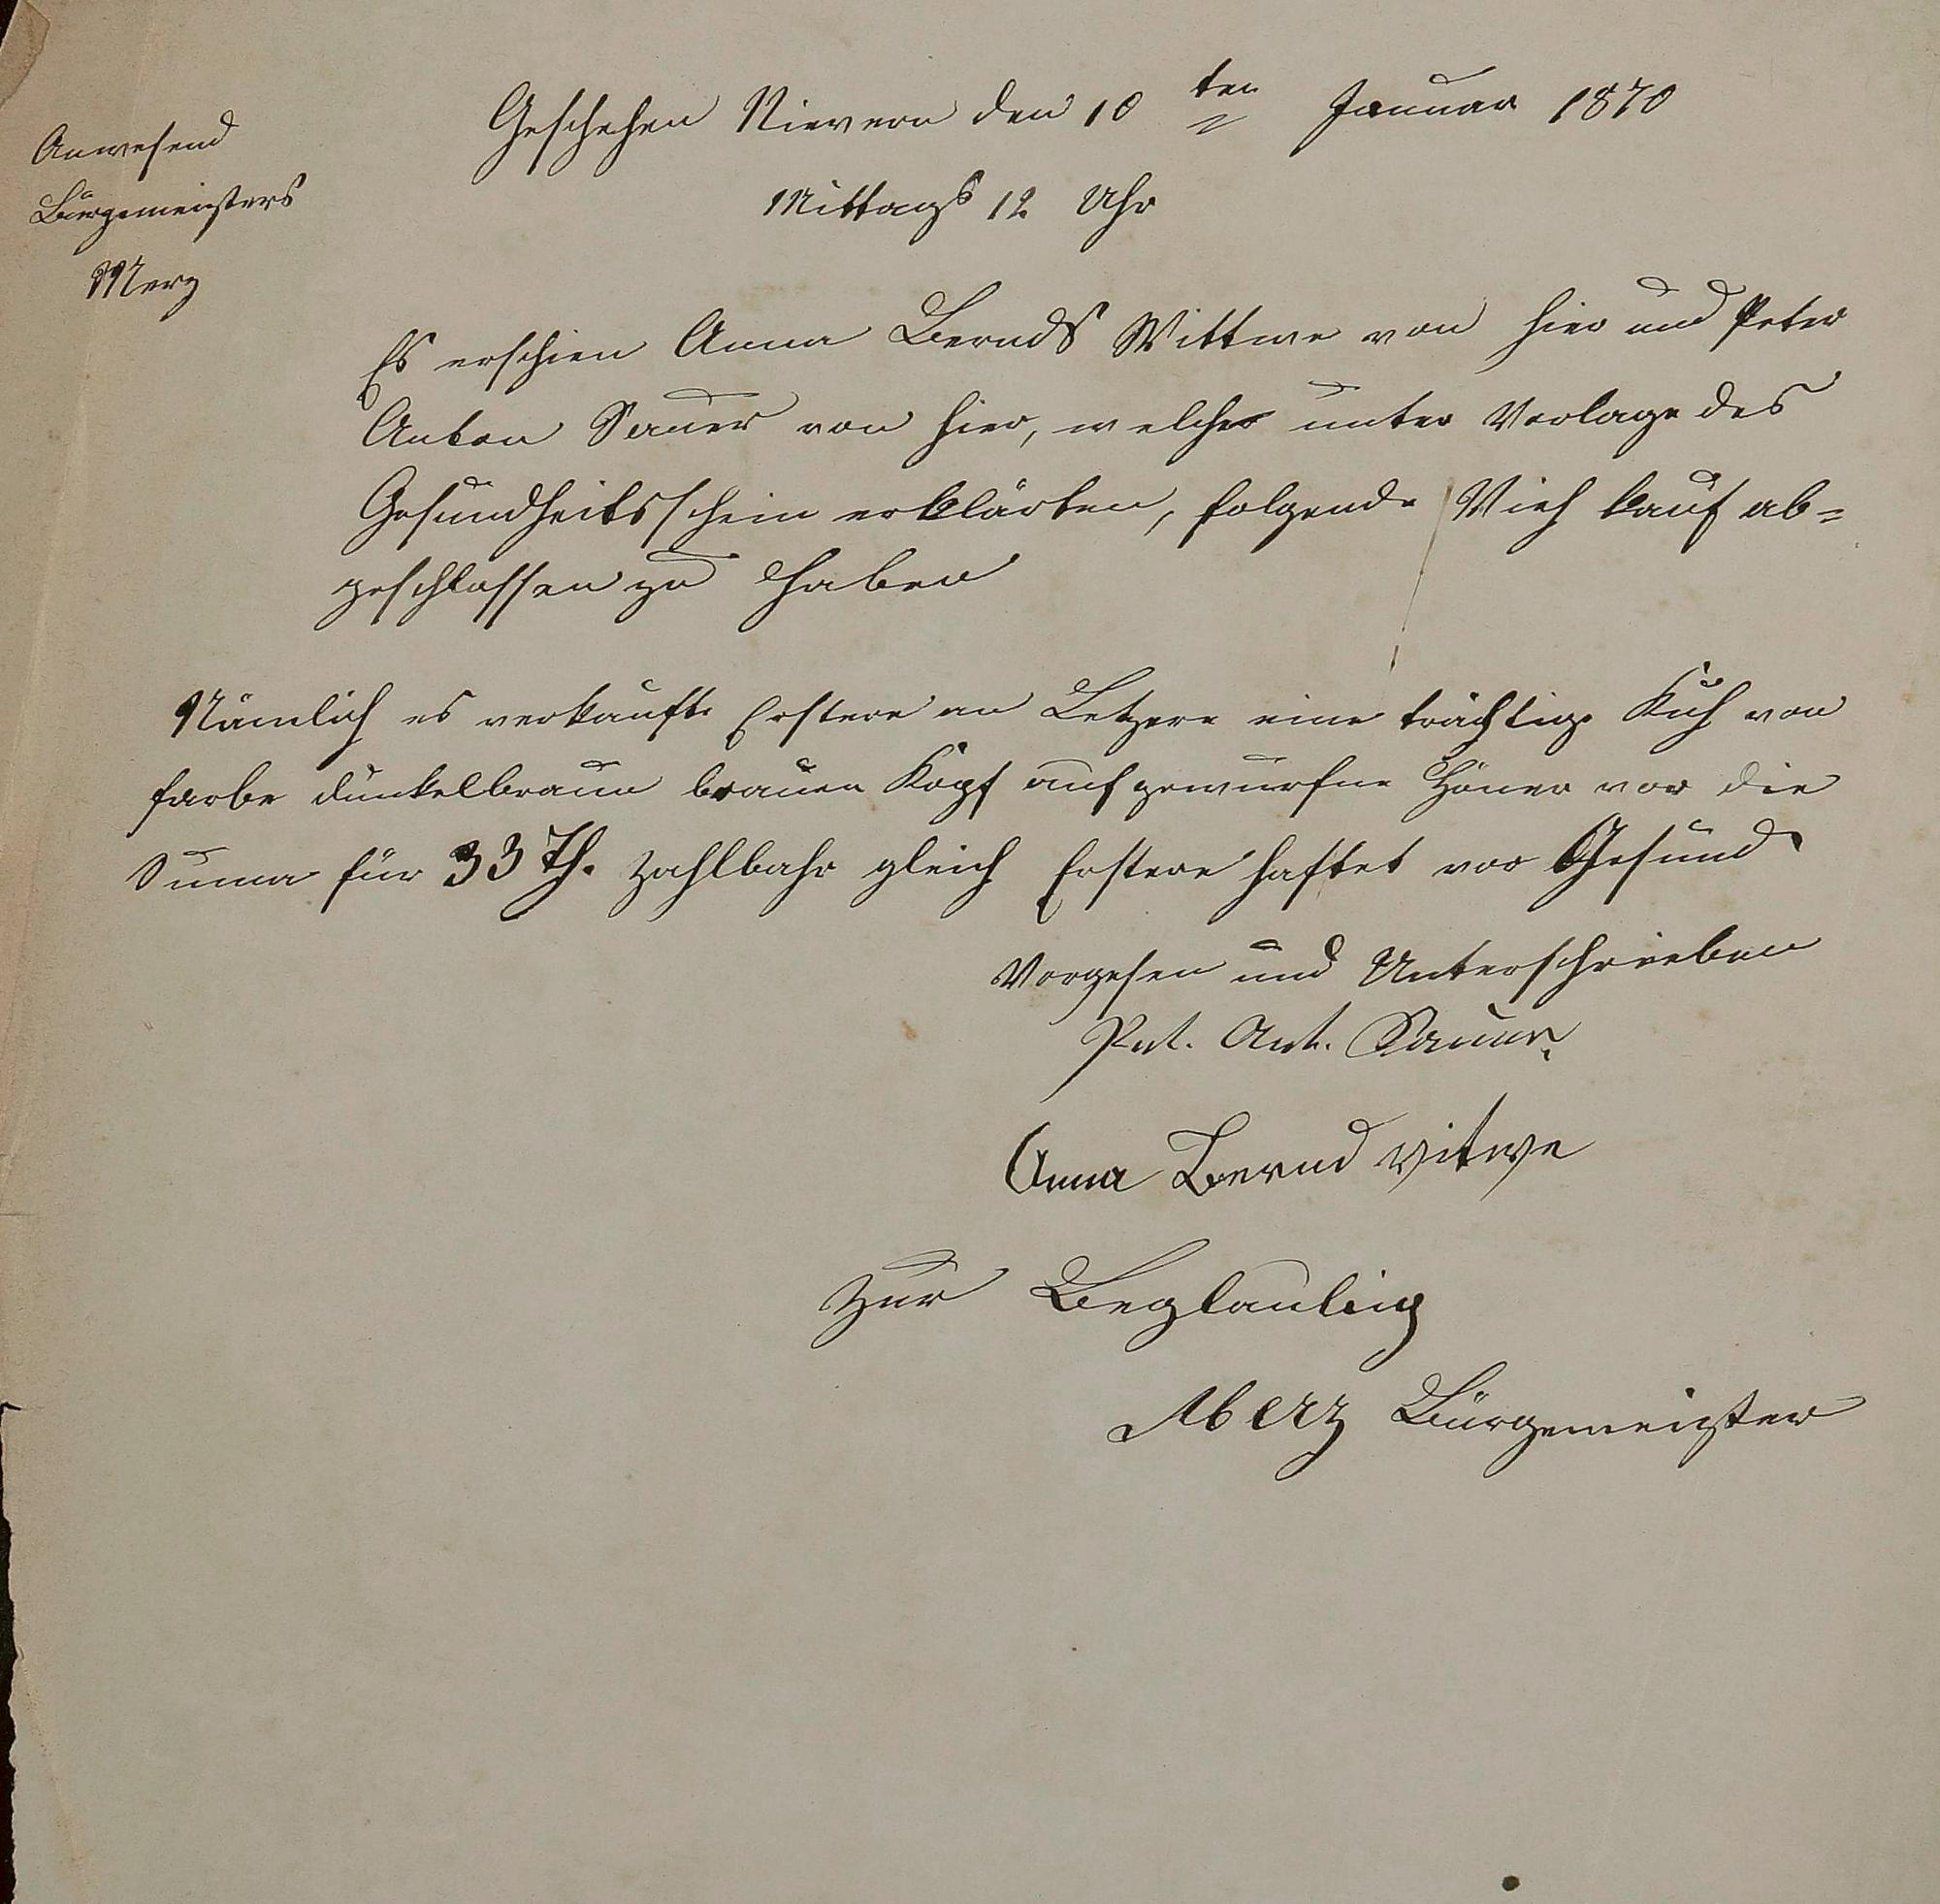 Geschehen Nievern den 10ten Januar 1870
Mittags 12 Uhr
Anwesend
Bürgemeisters
Merz
Es erschien Anna Bernds Wittwe von hier und Peter
Anton Sauer von hier, welcher unter Vorlage des
Gesundheitsschein erklärten, folgende Vieh kauf ab=
geschlossen zu haben
Nämlich es verkaufte Erstere an Letzere eine trächtige Kuh von
farbe dunkelbraun brauen Kopf aufgewurfne Höner vor die
Suma für 33 Th. zahlbahr gleich Erstere haftet vor Gesund
Vorgesen und Unterschrieben
Pet. Ant. Sauer.
Anna Bernd Witwe
Zur Beglaubig
Merz Bürgemeister